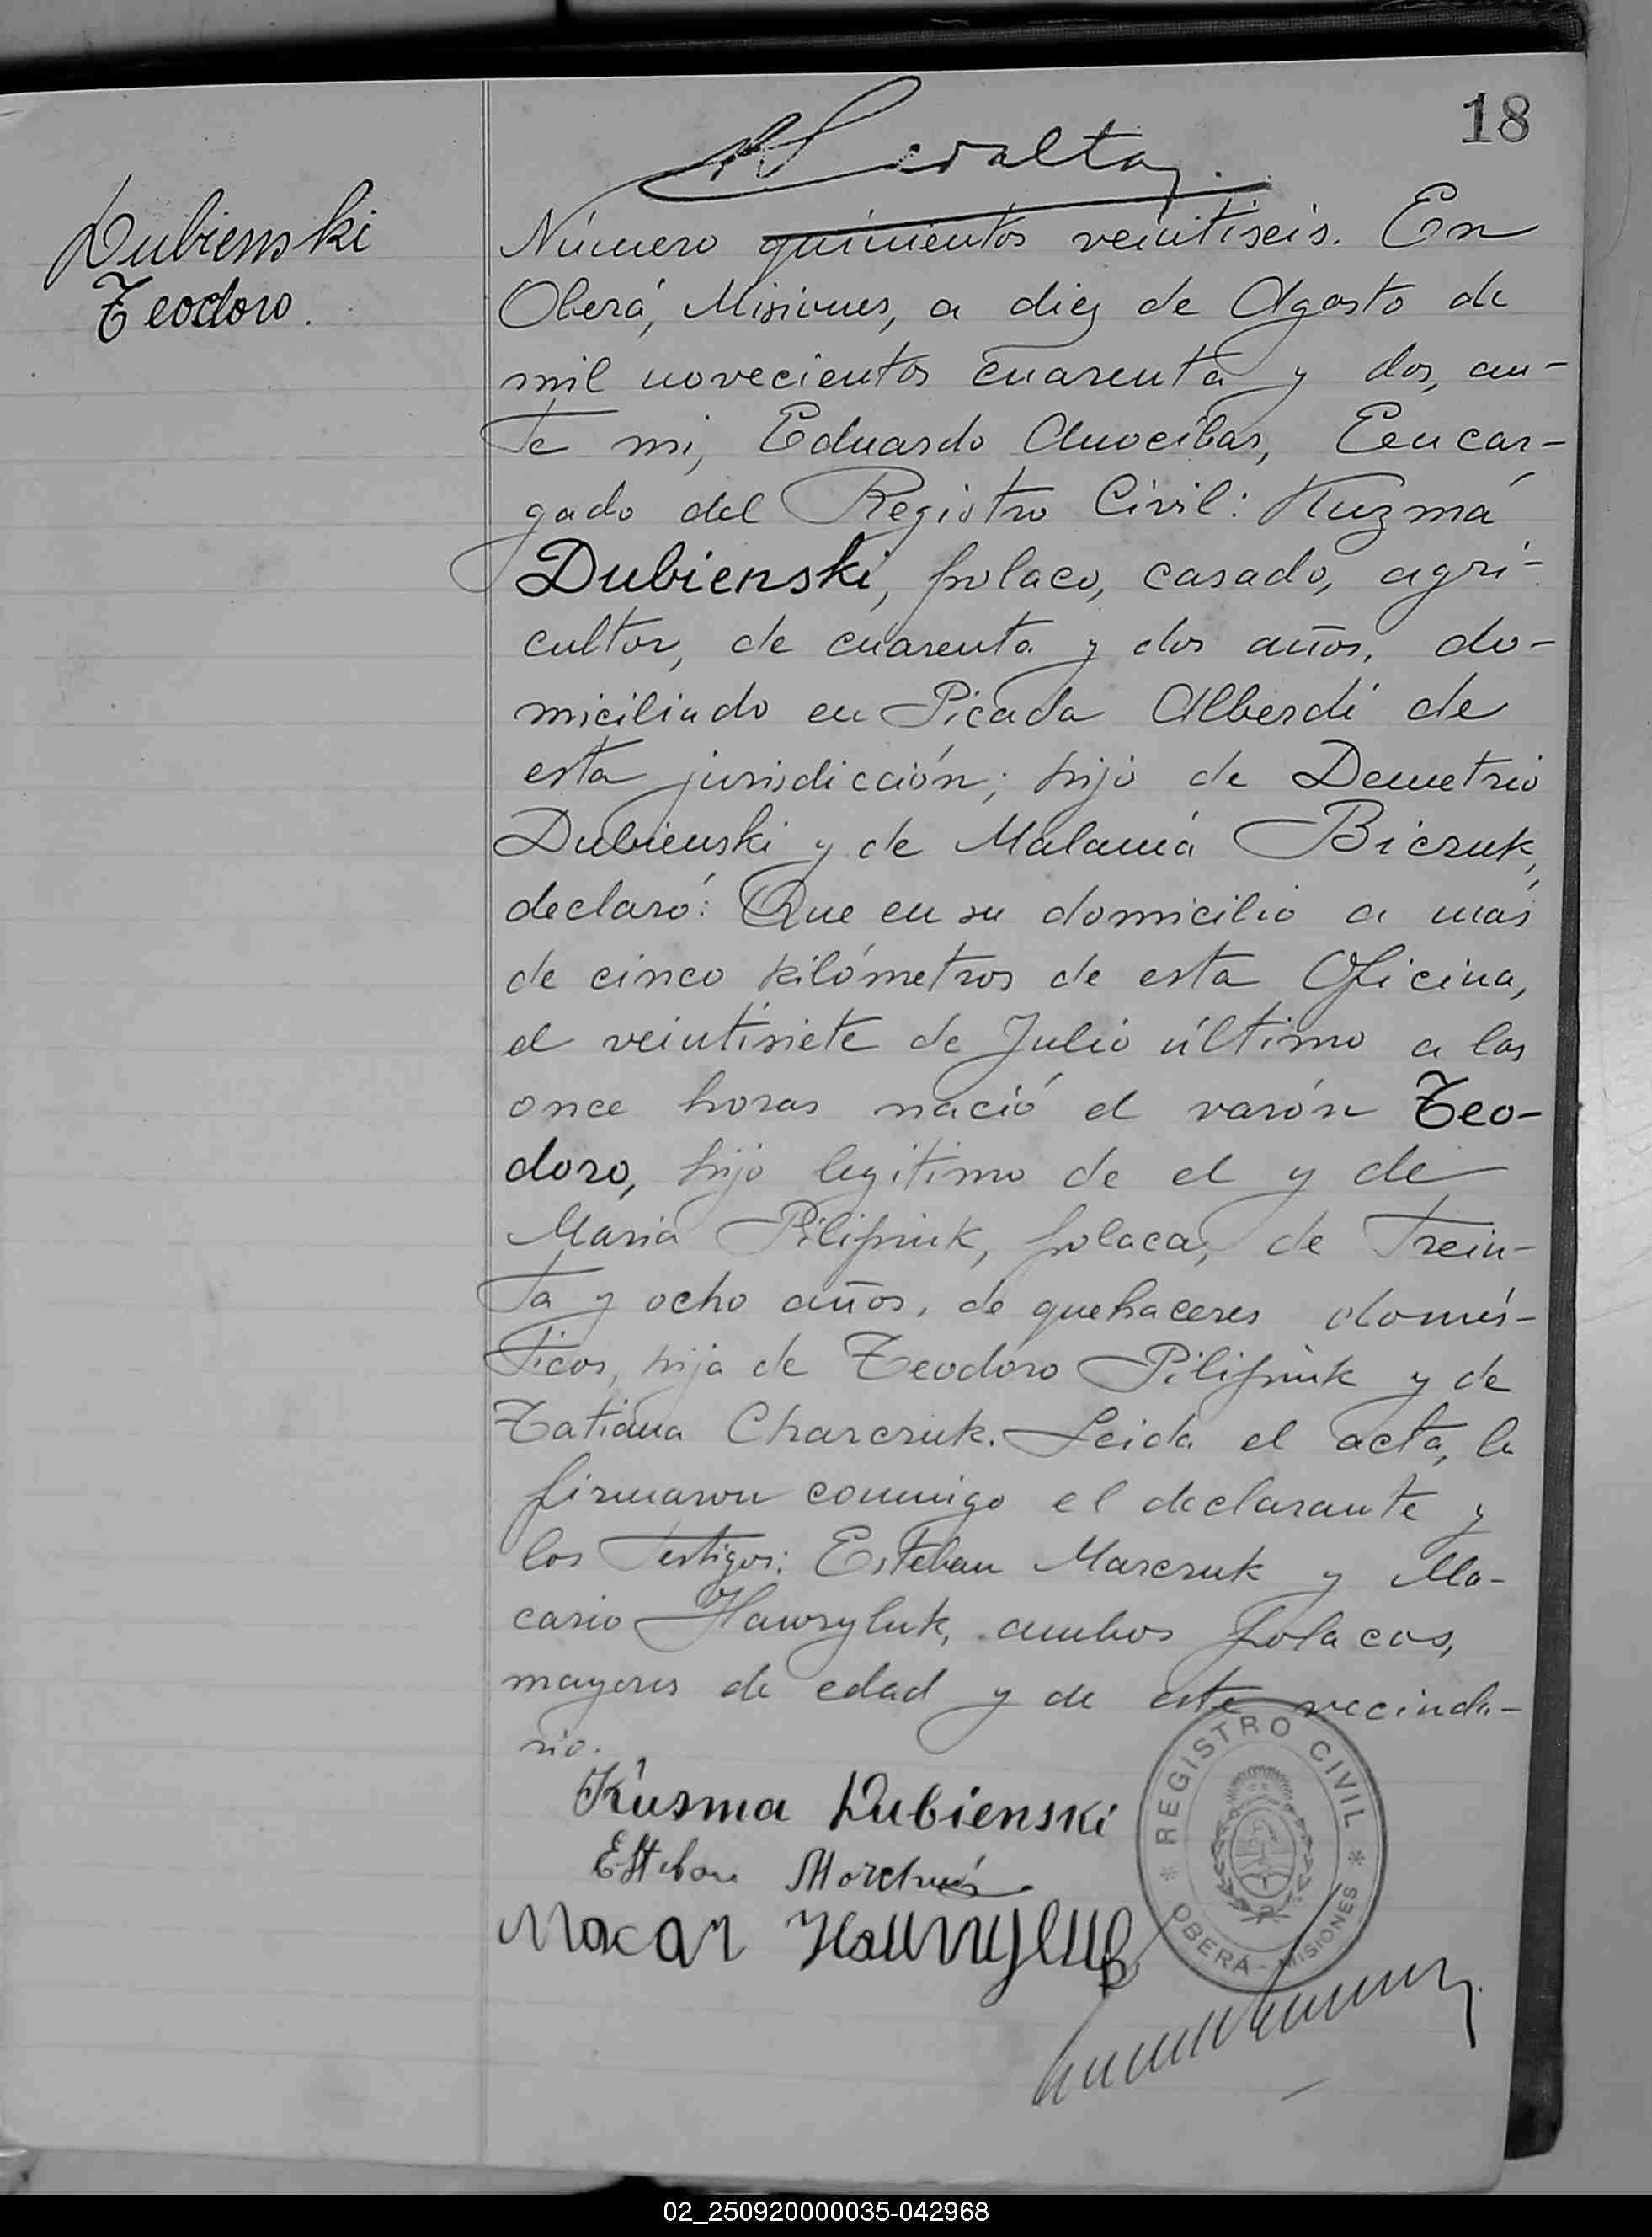 18
Peralta
Dubienski
Teodoro.
Número quinientos veintiseis. En
Oberá, Misiones, a diez de Agosto de
mil novecientos cuarenta y dos, an-
te mi, Eduardo Anocibar, Encar-
gado del Registro Civil: Kuzmá
Dubienski, polaco, casado, agri-
cultor, de cuarenta y dos años, do-
miciliado en Picada Alberdi de
esta jurisdicción; hijo de Demetrio
Dubienski y de Malania Biczuk,
declaró: Que en su domicilio a más
de cinco kilómetros de esta Oficina,
el veintisiete de Julio último a las
once horas nació el varón Teo-
doro, hijo legitimo de el y de
Maria Pilipiuk, polaca, de Trein-
ta y ocho años, de quehaceres domés-
ticos, hija de Teodoro Pilipiuk y de
Tatiana Charczuk. Leida el acta, la
firmaron conmigo el declarante y
los Testigos: Esteban Marczuk y Ma-
cario Hawryluk, ambos polacos,
mayores de edad y de este vecinda-
rio.
Kusma Dubienski
Esteban
Makar
REGISTRO CIVIL
* OBERÁ - MISIONES *
02_250920000035-042968